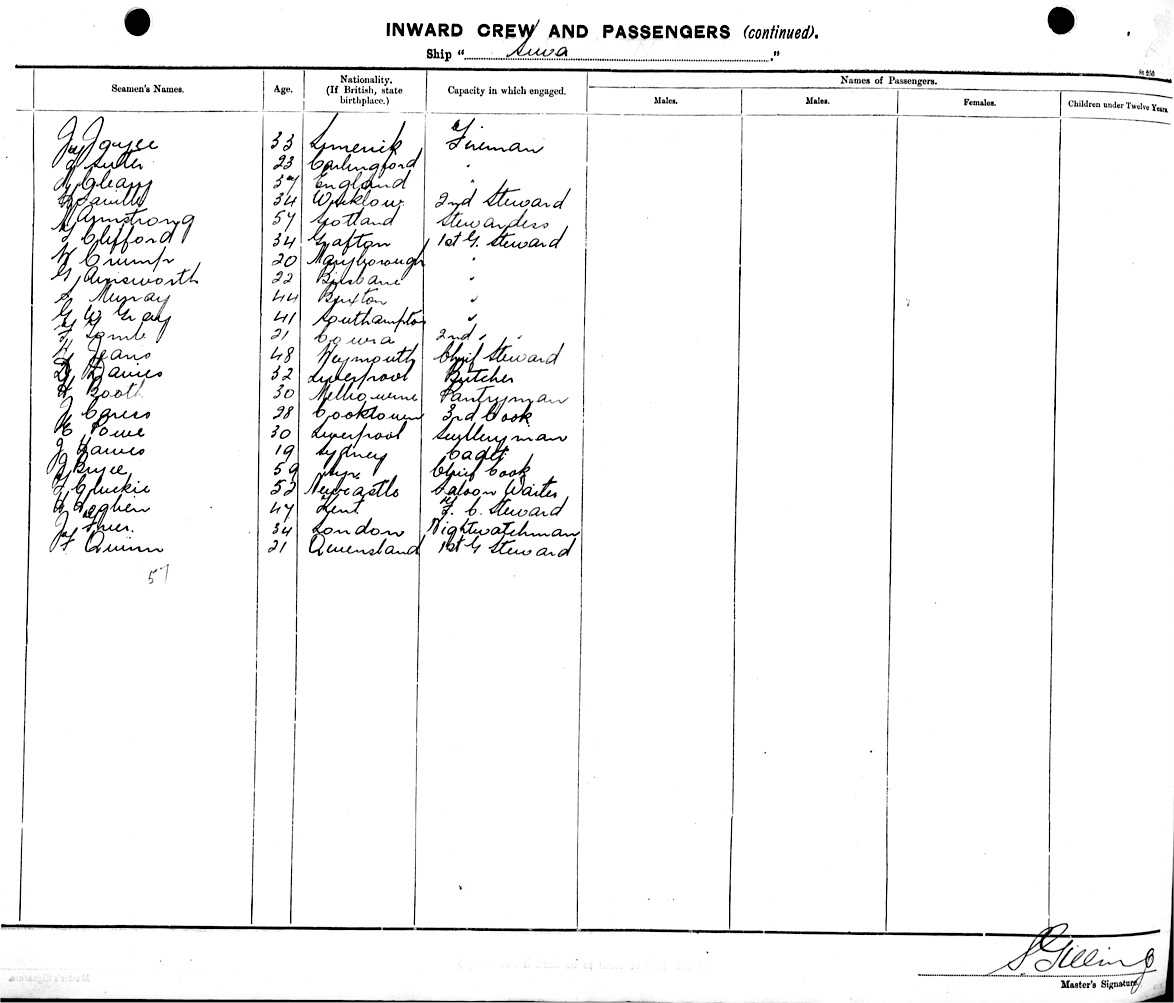 INWARD CREW AND PASSENGERS (continued).
Ship " Suva ."
Seamen's Names. Age. Nationality. (If British, state birthplace.) Capacity in which engaged. Names of Passengers.
Males. Males. Females. Children under Twelve Years
Joyce 33 Limerick Fireman
23 Carlingford "
Cleary 37 England "
Saville 34 Wicklow 2nd Steward
Armstrong 54 Scotland Stewardess
Clifford 34 Grafton 1st G. Steward
W Crump 20 Maryborough "
G Ainsworth 22 Brisbane "
S Murray 44 Buxton "
G W Gray 41 Southampton "
F Lamb 21 Cowra 2nd " "
Jeans 48 Weymouth Chief Steward
D Davies 32 Liverpool Butcher
H Booth 30 Melbourne Pantryman
J Caress 28 Cooktown 3rd Cook
E Towe 30 Liverpool Sculleryman
J Hawes 19 Sydney Cadet
J Bryce 59 Chief Cook
Cluckie 52 Newcastle Saloon Waiter
47 Kent F. C. Steward
34 London Nightwatchman
F Quinn 21 Queensland 1st G Steward
57
S Gilling
Master's Signature